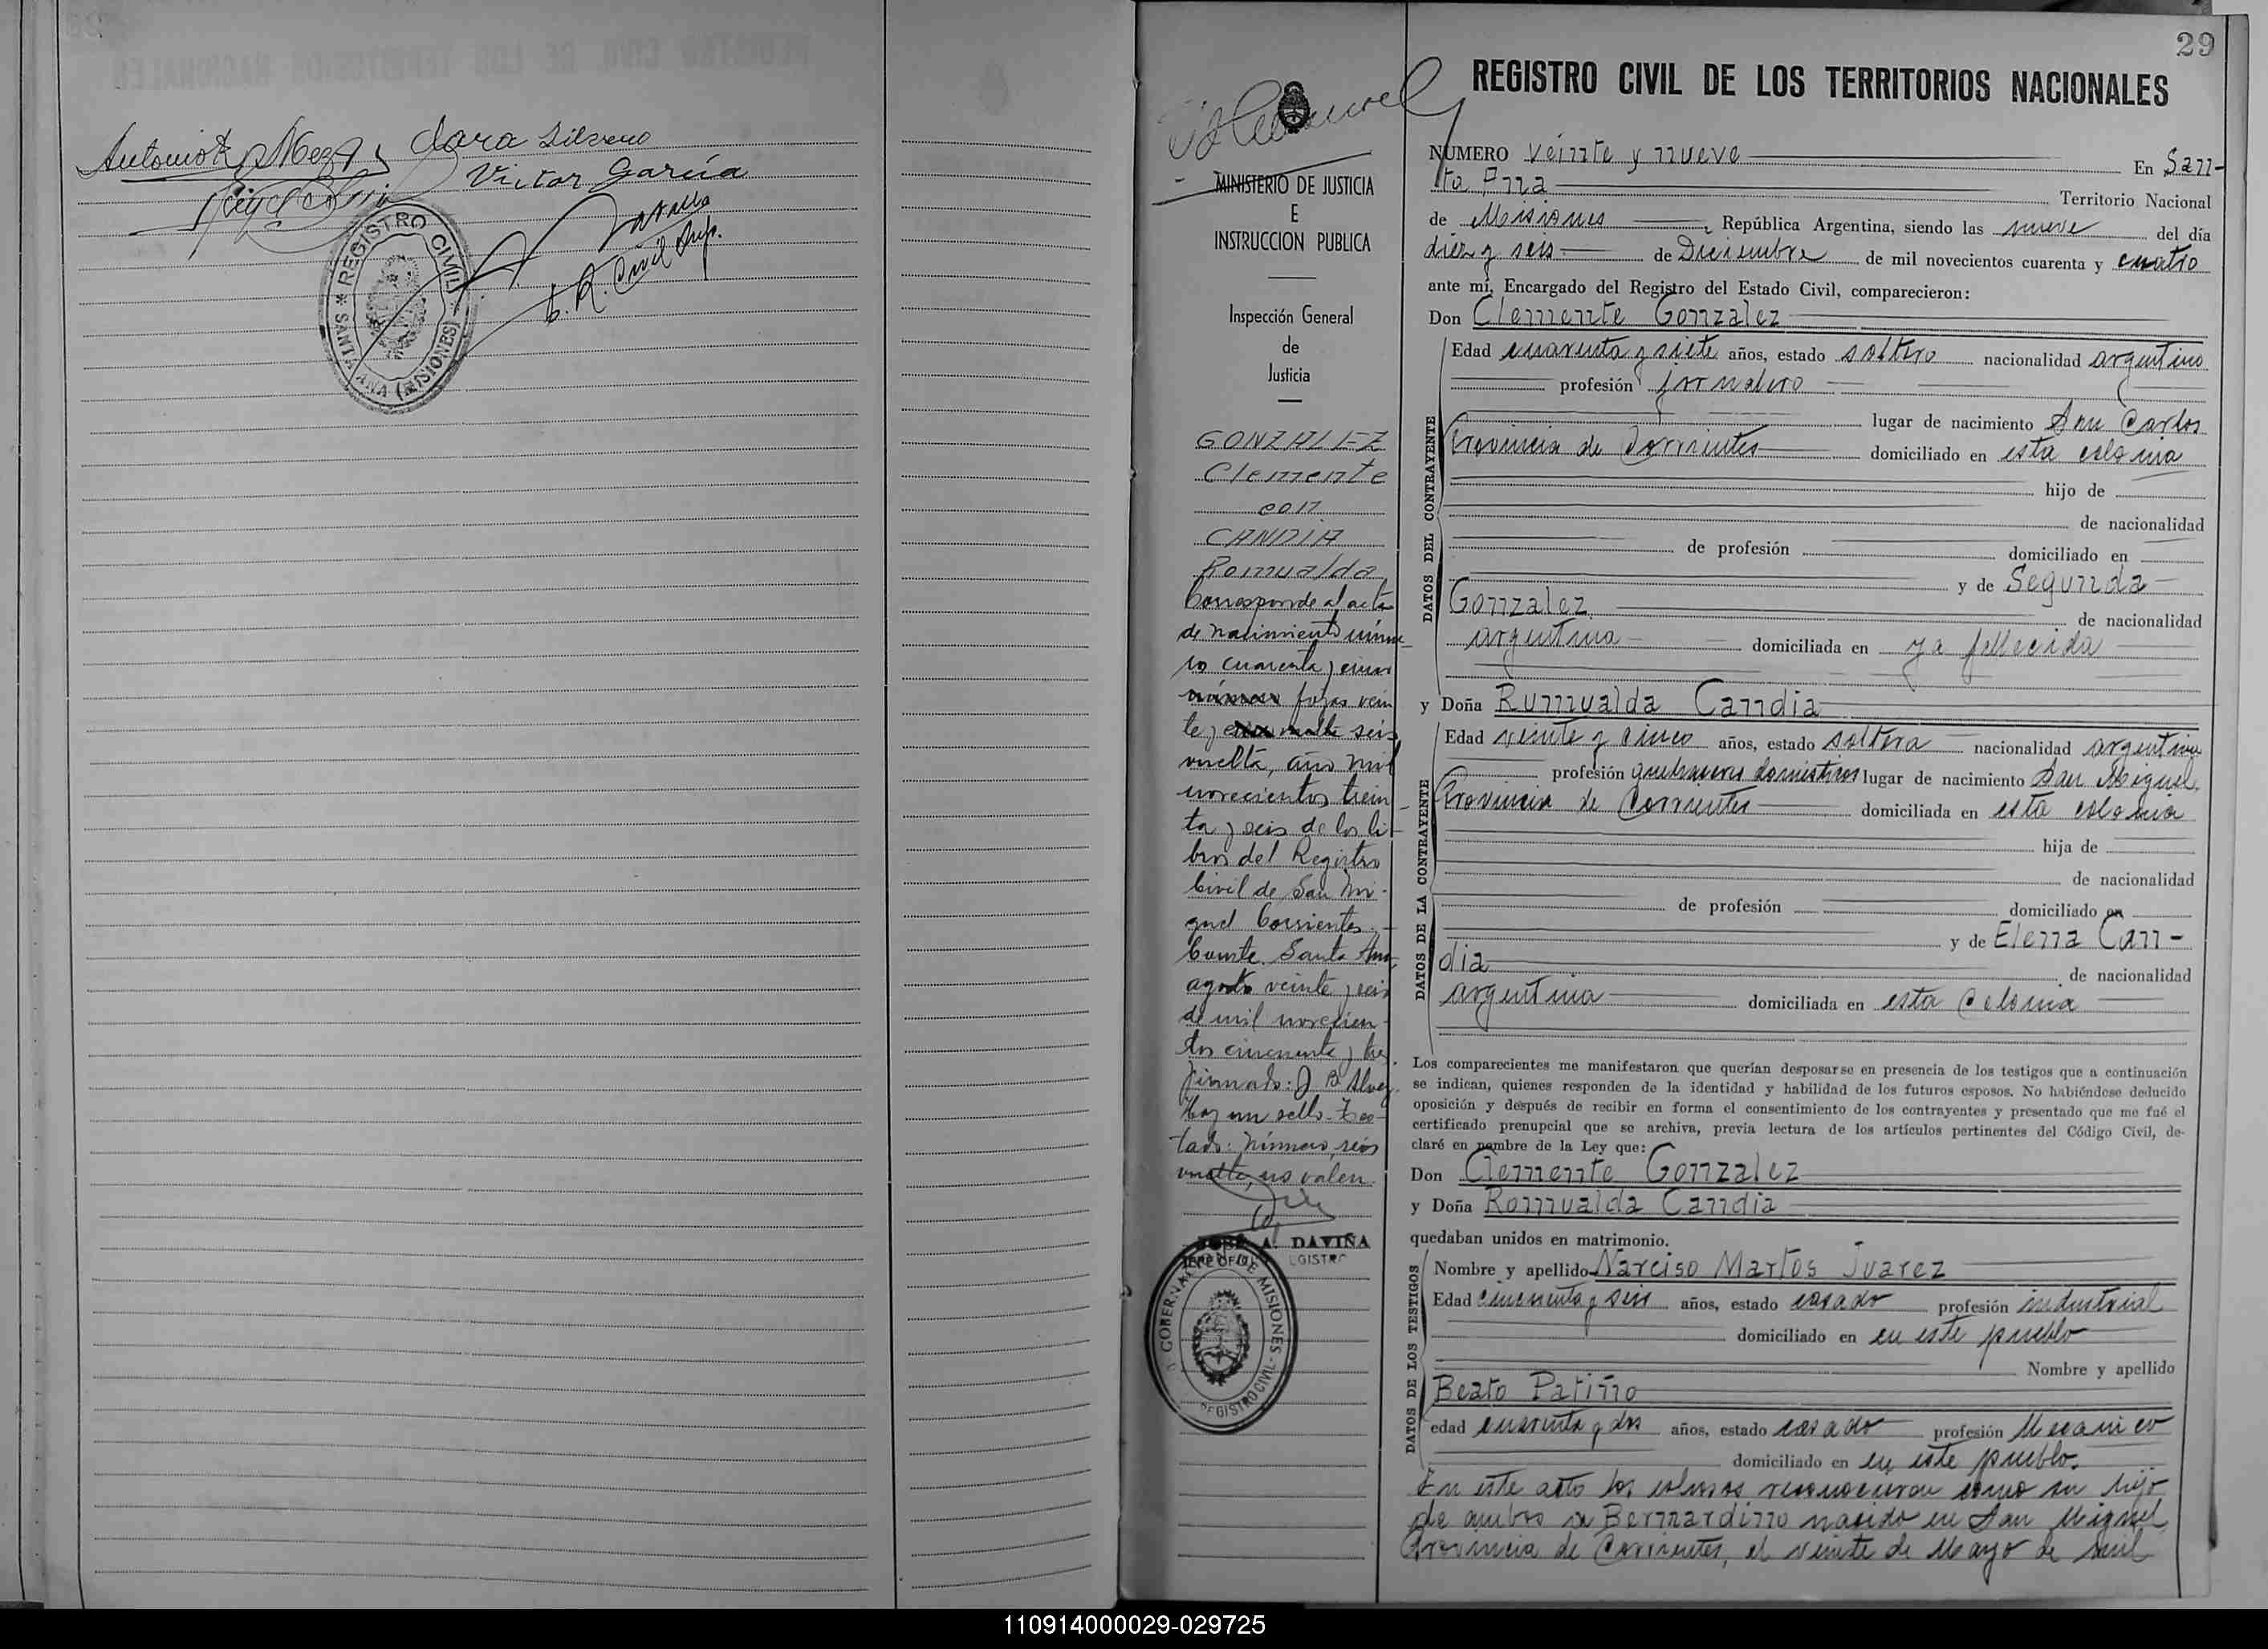 Clara Silvero
Victor García
REGISTRO CIVIL
SANTA ANA (MISIONES)
R. Civil Sup.
29
REGISTRO CIVIL DE LOS TERRITORIOS NACIONALES
MINISTERIO DE JUSTICIA
E
INSTRUCCION PUBLICA
Inspección General
de
Justicia
GONZALEZ
Clemente
con
CANDIA
Romualda
Corresponde al acta
de nacimiento núme
ro cuarenta y cinco
fojas vein
te y seis
vuelta, año mil
novecientos trein
ta y seis de los li
bros del Registro
Civil de San Mi-
guel Corrientes.
Conste. Santa Ana
agosto veinte y seis
de mil novecien-
tos cincuenta y tres.
Firmado: J B Alvez
Hay un sello. Tes-
tado: número, seis
vuelta, no valen.
JOSÉ A. DAVIÑA
GOBERNACION DE MISIONES
REGISTRO CIVIL
NUMERO veinte y nueve En San-
ta Ana Territorio Nacional
de Misiones, República Argentina, siendo las nueve del día
diez y seis de Diciembre de mil novecientos cuarenta y cuatro
ante mí, Encargado del Registro del Estado Civil, comparecieron:
Don Clemente Gonzalez
DATOS DEL CONTRAYENTE
Edad cuarenta y siete años, estado soltero nacionalidad argentino
profesión jornalero
lugar de nacimiento San Carlos
Provincia de Corrientes domiciliado en esta colonia
hijo de
de nacionalidad
de profesión domiciliado en
y de Segunda
Gonzalez de nacionalidad
argentina domiciliada en ya fallecida
y Doña Rumualda Candia
DATOS DE LA CONTRAYENTE
Edad veinte y cinco años, estado soltera nacionalidad argentina
profesión quehaceres domesticos lugar de nacimiento San Miguel,
Provincia de Corrientes domiciliada en esta colonia
hija de
de nacionalidad
de profesión domiciliado en
y de Elena Can-
dia de nacionalidad
argentina domiciliada en esta Colonia
Los comparecientes me manifestaron que querían desposarse en presencia de los testigos que a continuación
se indican, quienes responden de la identidad y habilidad de los futuros esposos. No habiéndose deducido
oposición y después de recibir en forma el consentimiento de los contrayentes y presentado que me fué el
certificado prenupcial que se archiva, previa lectura de los artículos pertinentes del Código Civil, de-
claré en nombre de la Ley que:
Don Clemente Gonzalez
y Doña Romualda Candia
quedaban unidos en matrimonio.
DATOS DE LOS TESTIGOS
Nombre y apellido Narciso Martos Juarez
Edad cincuenta y seis años, estado casado profesión industrial
domiciliado en en este pueblo
Nombre y apellido
Beato Patiño
edad cuarenta y dos años, estado casado profesión Mecanico
domiciliado en en este pueblo.
En este acto los esposos reconocieron como su hijo
de ambos a Bernardino nacido en San Miguel,
Provincia de Corrientes, el veinte de Mayo de mil
110914000029-029725